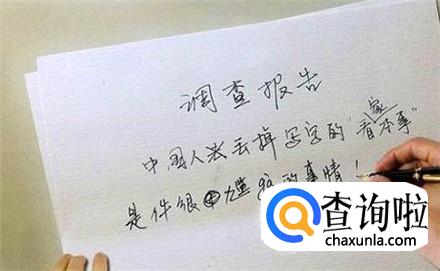 调查报告
中国人丢掉写字的“看家本事”
是件很尴ga的事情！
查询啦
chaxunla.com